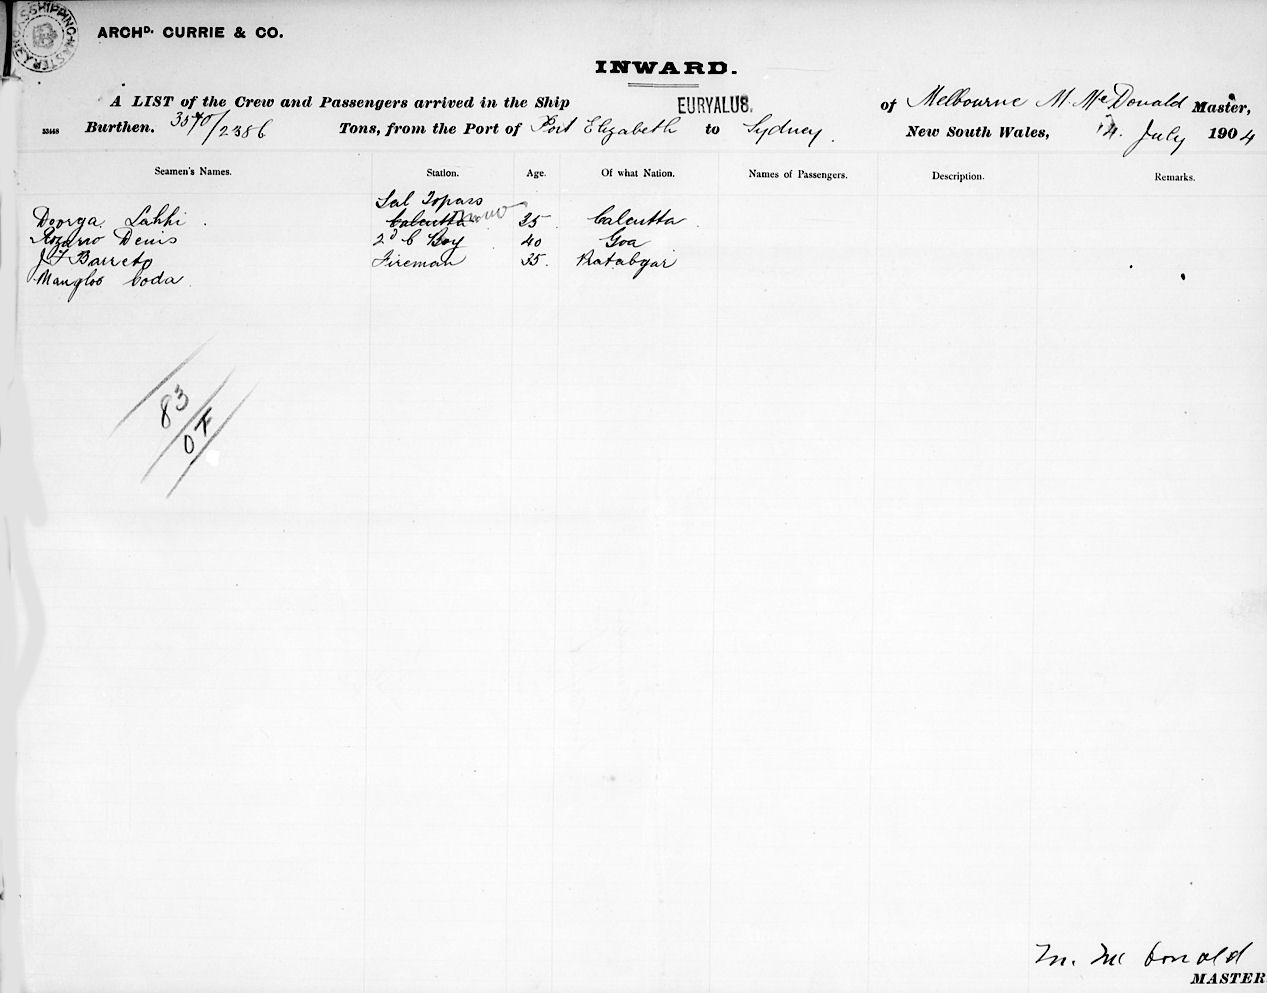 SHIPPING MASTER
ARCHD. CURRIE & CO.
INWARD.
A LIST of the Crew and Passengers arrived in the Ship EURYALUS. of Melbourne M. McDonald Master,
33468 Burthen. 3570/2386 Tons, from the Port of Port Elizabeth to Sydney. New South Wales, 14. July 1904
Seamen's Names. Station. Age. Of what Nation. Names of Passengers. Description. Remarks.
Sal Topass
Doorga Sahhi Calcutta 35 Calcutta
Rozario Denis 2d C Boy 40 Goa
J F Barreto Fireman 35.
Mangloo Coda
83
OF
M. Mc Donald
MASTER